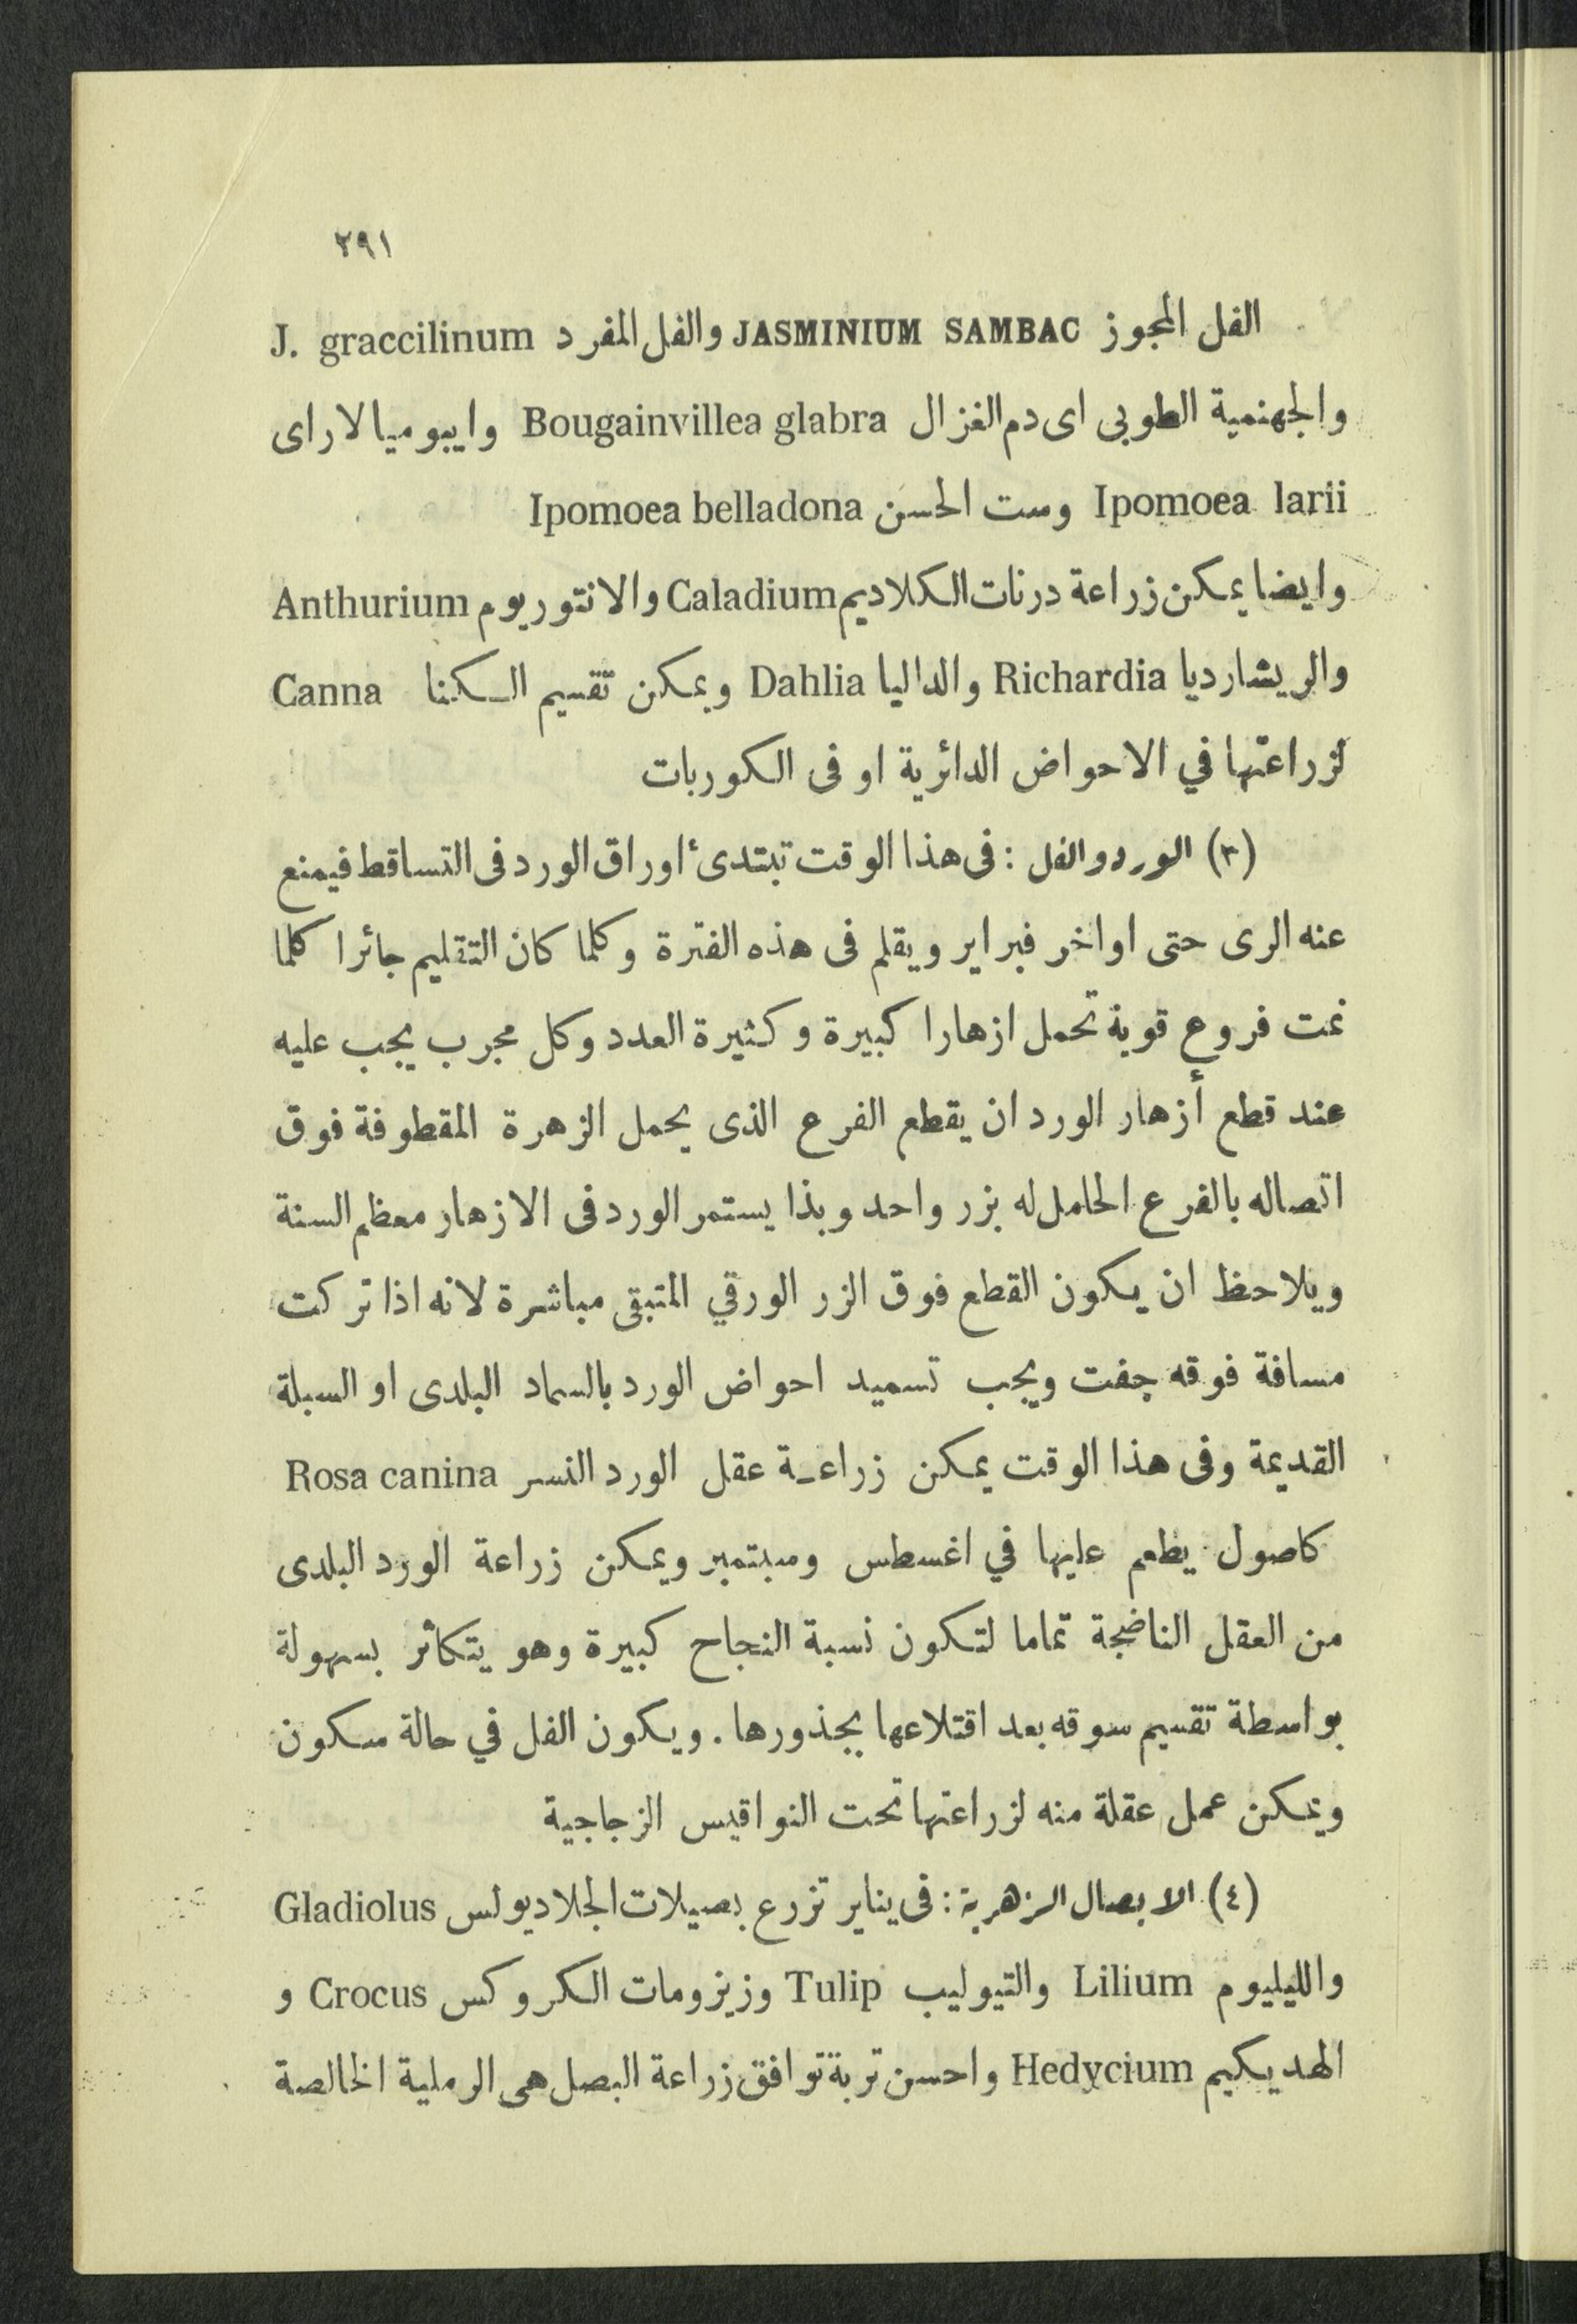 ٢٩١
الفل المجوز JASMINIUM SAMBAC والفل المفرد J. graccilinum
والجهنمية الطوبى اى دم الغزال Bougainvillea glabra وايبوميا لاراى
Ipomoea larii وست الحسن Ipomoea belladona
وايضا يمكن زراعة درنات الكلاديم Caladium والانتوريوم Anthurium
والريشارديا Richardia والداليا Dahlia ويمكن تقسيم الكنا Canna
لزراعتها في الاحواض الدائرية او فى الكوربات
(٣) الورد والفل : فى هذا الوقت تبتدىء اوراق الورد فى التساقط فيمنع
عنه الرى حتى اواخر فبراير ويقلم فى هذه الفترة وكلما كان التقليم جائرا كلما
نمت فروع قوية تحمل ازهارا كبيرة وكثيرة العدد وكل مجرب يجب عليه
عند قطع أزهار الورد ان يقطع الفرع الذى يحمل الزهرة المقطوفة فوق
اتصاله بالفرع الحامل له بزر واحد وبذا يستمر الورد فى الازهار معظم السنة
ويلاحظ ان يكون القطع فوق الزر الورقي المتبقى مباشرة لانه اذا تركت
مسافة فوقه جفت ويجب تسميد احواض الورد بالسماد البلدى او السبلة
القديمة وفى هذا الوقت يمكن زراعة عقل الورد النسر Rosa canina
كاصول يطعم عليها في اغسطس وسبتمبر ويمكن زراعة الورد البلدى
من العقل الناضجة تماما لتكون نسبة النجاح كبيرة وهو يتكاثر بسهولة
بواسطة تقسيم سوقه بعد اقتلاعها بجذورها . ويكون الفل في حالة سكون
ويمكن عمل عقلة منه لزراعتها تحت النواقيس الزجاجية
(٤) الابصال الزهرية : فى يناير تزرع بصيلات الجلاديولس Gladiolus
والليليوم Lilium والتيوليب Tulip وزيزومات الكروكس Crocus و
الهديكيم Hedycium واحسن تربة توافق زراعة البصل هى الرملية الخالصة